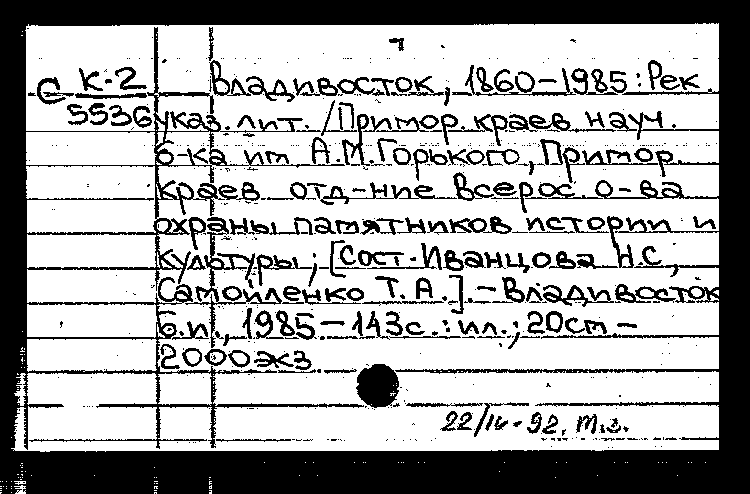 С К-2 Владивосток, 1860-1985: Рек.
5536 указ. лит. / Примор. краев. науч.
б-ка им. А.М.Горького, Примор.
краев. отд-ние Всерос. о-ва
охраны памятников истории и
культуры; [Сост. Иванцова Н.С.,
Самойленко Т.А.]. - Владивосток
б.и., 1985 - 143с.: ил.; 20см. -
2000экз.
22/IV-92. т.з.